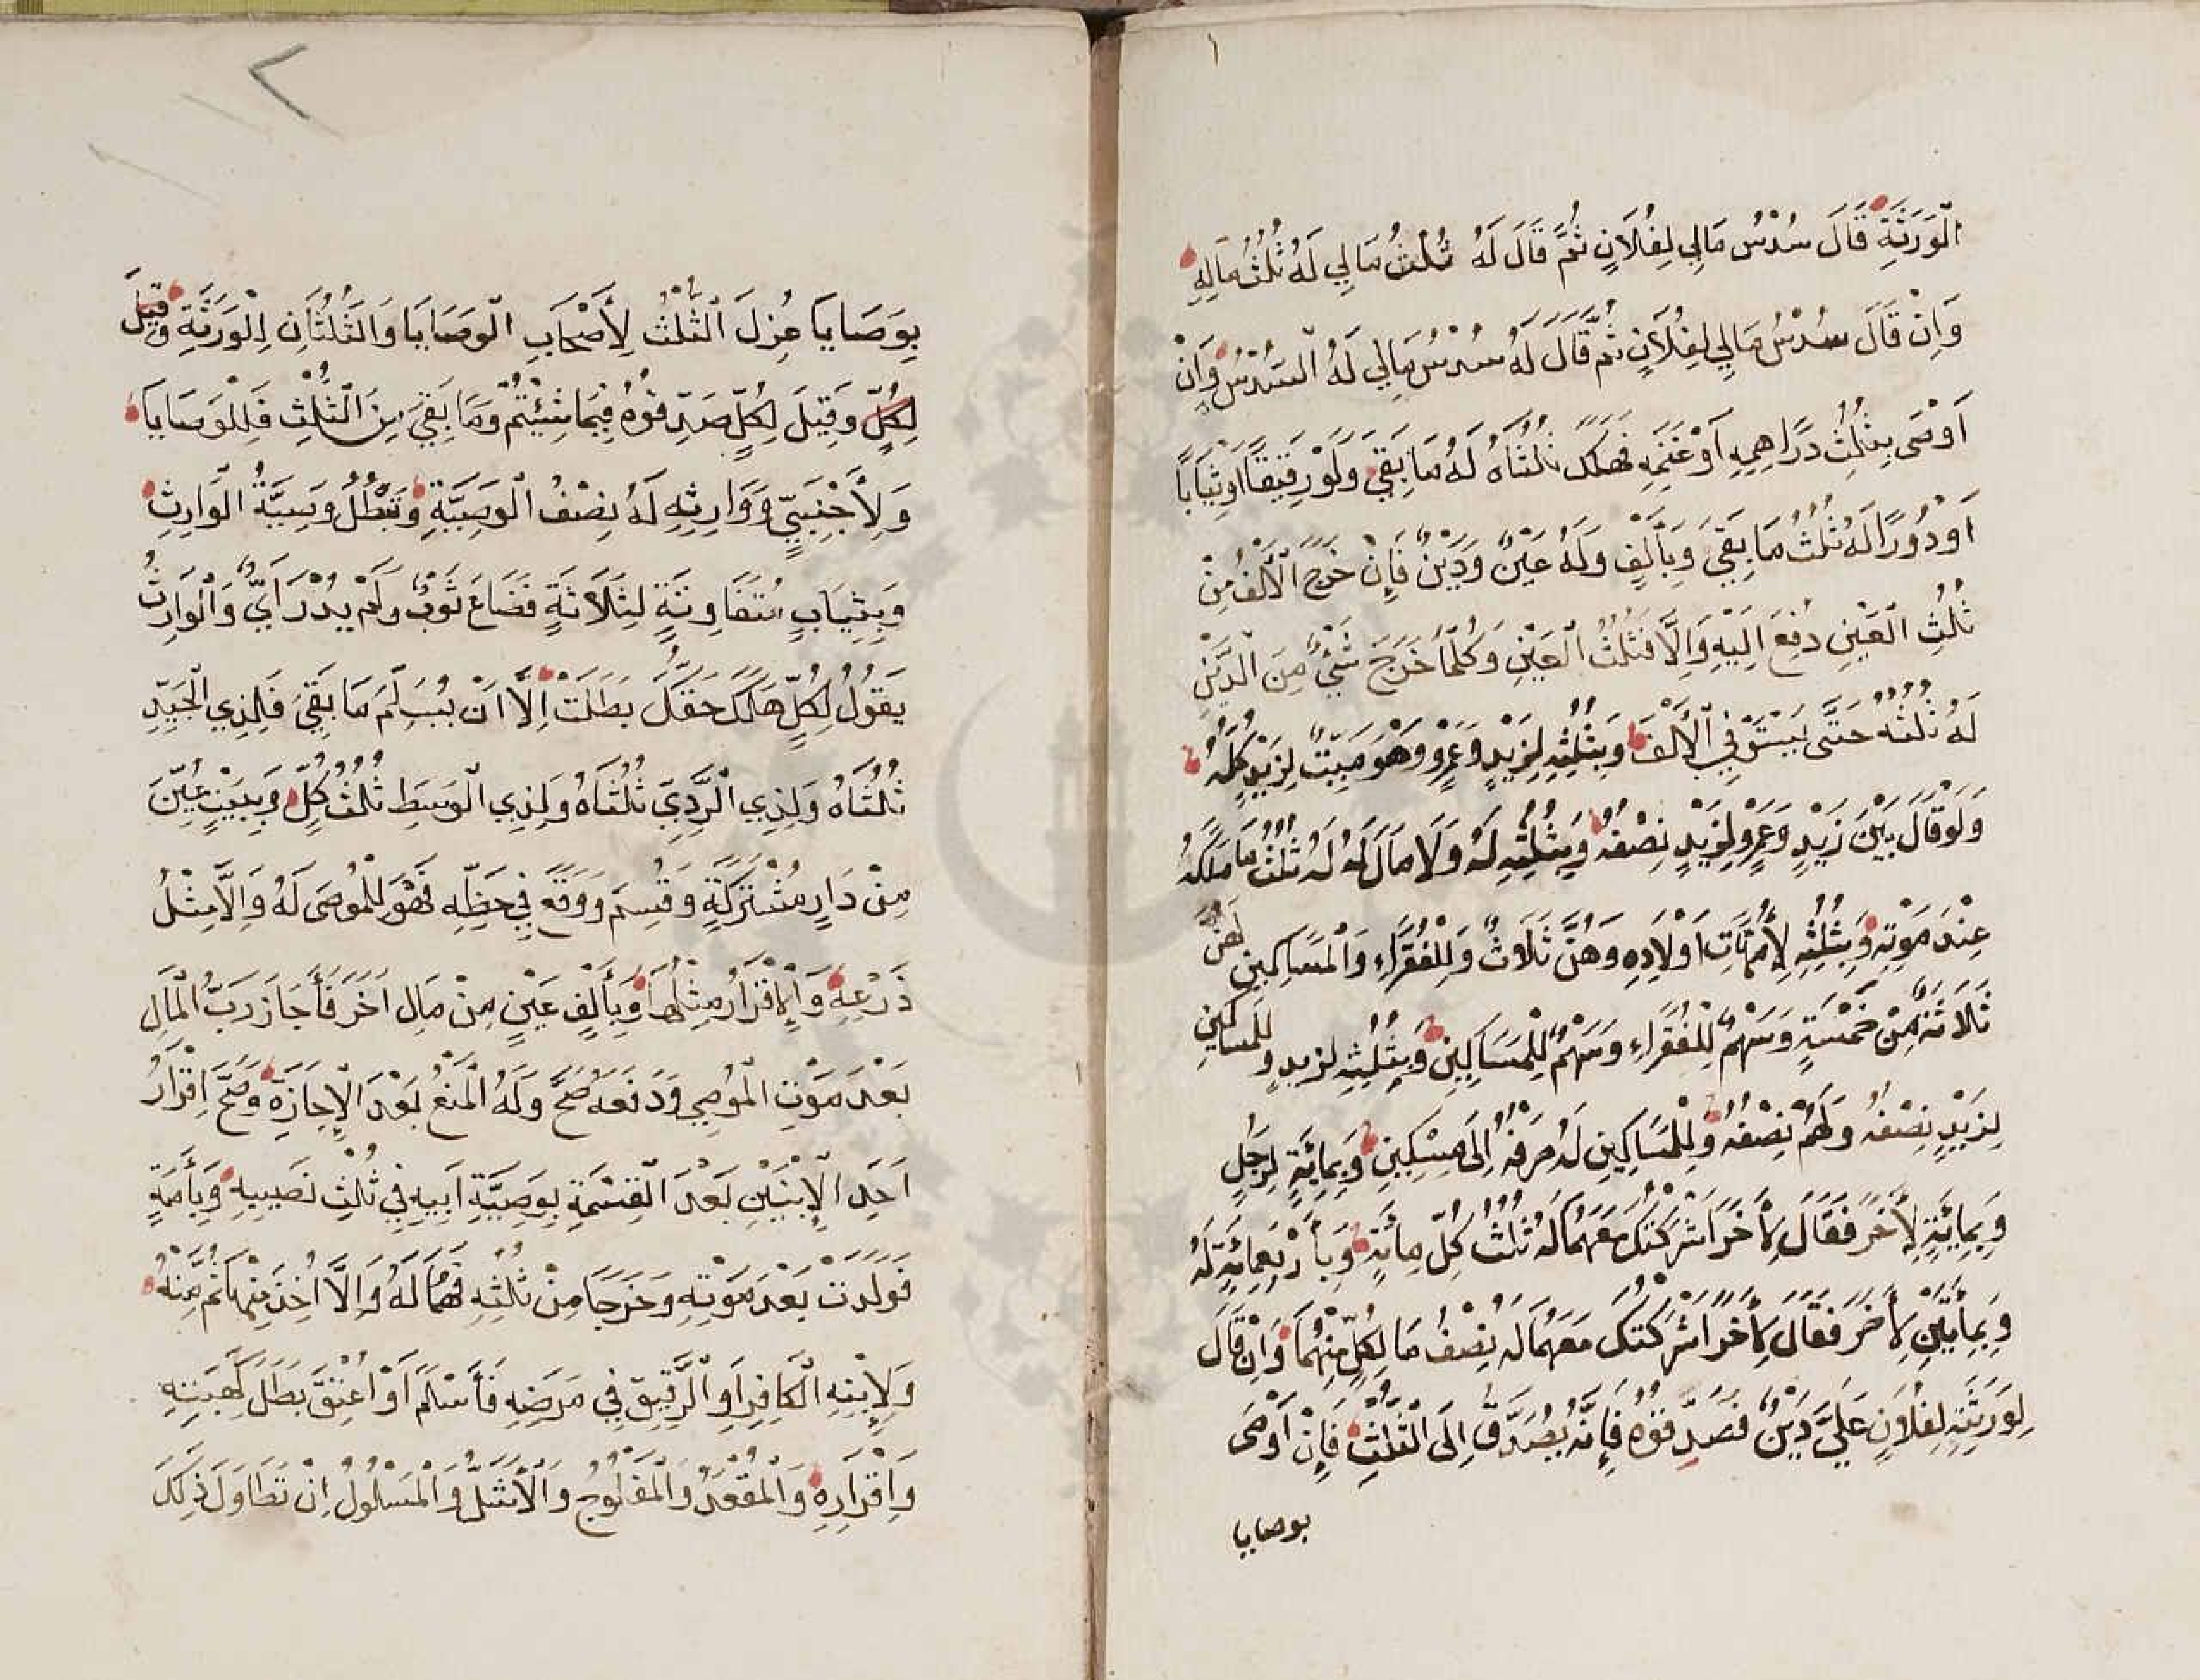 ١
الْوَرَثَةِ قَالَ سُدُسُ مَالِي لِفُلَانٍ ثُمَّ قَالَ لَهُ ثُلُثُ مَالِي لَهُ ثُلُثُ مَالِهِ
وَاِنْ قَالَ سُدُسُ مَالِي لِفُلَانٍ ثُمَّ قَالَ لَهُ سُدُسُ مَالِي لَهُ السُّدُسُ وَاِنْ
اَوْصَى بِثُلُثِ دَرَاهِمِهِ اَوْ غَنَمِهِ فَهَلَكَ ثُلُثَاهُ لَهُ مَا بَقِيَ وَلَوْ رَقِيقًا اَوْ ثِيَابًا
اَوْ دُورًا لَهُ ثُلُثُ مَا بَقِيَ وَبِأَلْفٍ وَلَهُ عَيْنٌ وَدَيْنٌ فَإِنْ خَرَجَ الْأَلْفُ مِنْ
ثُلُثِ الْعَيْنِ دُفِعَ اِلَيْهِ وَاِلَّا فَثُلُثُ الْعَيْنِ وَكُلَّمَا خَرَجَ شَيْءٌ مِنَ الدَّيْنِ
لَهُ ثُلُثُهُ حَتَّى يَسْتَوْفِيَ الْأَلْفَ وَبِثُلُثِهِ لِزَيْدٍ وَعَمْرٍو وَهُوَ مَيِّتٌ لِزَيْدٍ كُلُّهُ
وَلَوْ قَالَ بَيْنَ زَيْدٍ وَعَمْرٍو لِزَيْدٍ نِصْفُهُ وَبِثُلُثِهِ لَهُ وَلَا مَالَ لَهُ لَهُ ثُلُثُ مَا مَلَكَهُ
عِنْدَ مَوْتِهِ وَبِثُلُثِهِ لِأُمَّهَاتِ اَوْلَادِهِ وَهُنَّ ثَلَاثٌ وَلِلْفُقَرَاءِ وَالْمَسَاكِينِ لَهُنَّ
ثَلَاثَةٌ مِنْ خَمْسَةٍ وَسَهْمٌ لِلْفُقَرَاءِ وَسَهْمٌ لِلْمَسَاكِينِ وَبِثُلُثِهِ لِزَيْدٍ وَلِلْمَسَاكِينِ
لِزَيْدٍ نِصْفُهُ وَلَهُمْ نِصْفُهُ وَلِلْمَسَاكِينِ لَهُ صَرْفُهُ اِلَى مِسْكِينٍ وَبِمِائَةٍ لِرَجُلٍ
وَبِمِائَةٍ لِأَخَرَ فَقَالَ لِأَخَرَ اَشْرَكْتُكَ مَعَهُمَا لَهُ ثُلُثُ كُلِّ مِائَةٍ وَبِأَرْبَعِمِائَةٍ لَهُ
وَبِمِأَتَيْنِ لِأَخَرَ فَقَالَ لِأَخَرَ اَشْرَكْتُكَ مَعَهُمَا لَهُ نِصْفُ مَا لِكُلٍّ مِنْهُمَا وَاِنْ قَالَ
لِوَرَثَتِهِ لِفُلَانٍ عَلَيَّ دَيْنٌ فَصَدِّقُوهُ فَإِنَّهُ يُصَدَّقُ اِلَى الثُّلُثِ فَإِنْ اَوْصَى
بوصايا
بِوَصَايَا عُزِلَ الثُّلُثُ لِأَصْحَابِ الْوَصَايَا وَالثُّلُثَانِ لِلْوَرَثَةِ وَقِيلَ
لِكُلٍّ وَقِيلَ لِكُلٍّ صَدِّقُوهُ فِيمَا شِئْتُمْ وَمَا بَقِيَ مِنَ الثُّلُثِ فَلِلْوَصَايَا
وَلِأَجْنَبِيٍّ وَوَارِثِهِ لَهُ نِصْفُ الْوَصِيَّةِ وَتَبْطُلُ وَصِيَّةُ الْوَارِثِ
وَبِثِيَابٍ مُتَفَاوِتَةٍ لِثَلَاثَةٍ فَضَاعَ ثَوْبٌ وَلَمْ يُدْرَ اَيٌّ وَالْوَارِثُ
يَقُولُ لِكُلٍّ هَلَكَ حَقُّكَ بَطَلَتْ اِلَّا اَنْ يُسَلِّمَ مَا بَقِيَ فَلِذِي الْجَيِّدِ
ثُلُثَاهُ وَلِذِي الرَّدِيِّ ثُلُثَاهُ وَلِذِي الْوَسَطِ ثُلُثُ كُلٍّ وَبِبَيْتٍ عُيِّنَ
مِنْ دَارٍ مُشْتَرَكَةٍ وَقُسِمَ وَوَقَعَ فِي حَظِّهِ فَهُوَ لِلْمُوصَى لَهُ وَاِلَّا مِثْلُ
ذَرْعِهِ وَالْإِقْرَارُ مِثْلُهَا وَبِأَلْفٍ عَيْنٍ مِنْ مَالِ اٰخَرَ فَأَجَازَ رَبُّ الْمَالِ
بَعْدَ مَوْتِ الْمُوصِي وَدَفَعَهُ صَحَّ وَلَهُ الْمَنْعُ بَعْدَ الْإِجَازَةِ وَصَحَّ اِقْرَارُ
اَحَدِ الْإِبْنَيْنِ بَعْدَ الْقِسْمَةِ بِوَصِيَّةِ اَبِيهِ فِي ثُلُثِ نَصِيبِهِ وَبِأَمَةٍ
فَوَلَدَتْ بَعْدَ مَوْتِهِ وَخَرَجَا مِنْ ثُلُثِهِ فَهُمَا لَهُ وَاِلَّا اُخِذَ مِنْهَا ثُمَّ مِنْهُ
وَلِإِبْنِهِ الْكَافِرِ اَوِ الرَّقِيقِ فِي مَرَضِهِ فَأَسْلَمَ اَوْ اُعْتِقَ بَطَلَ كَهِبَتِهِ
وَاِقْرَارِهِ وَالْمُقْعَدُ وَالْمَفْلُوجُ وَالْأَشَلُّ وَالْمَسْلُولُ اِنْ تَطَاوَلَ ذٰلِكَ